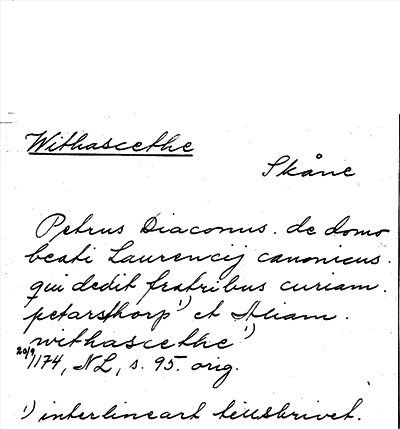 Withascethe
Skåne
Petrus Diaconus. de domo
beati Laurencij canonicus.
qui dedit fratribus curiam.
petarsthorp¹⁾ et Aliam.
withascethe¹⁾
20/9 1174, NL, s. 95. orig.
¹⁾ interlineart tillskrivet.